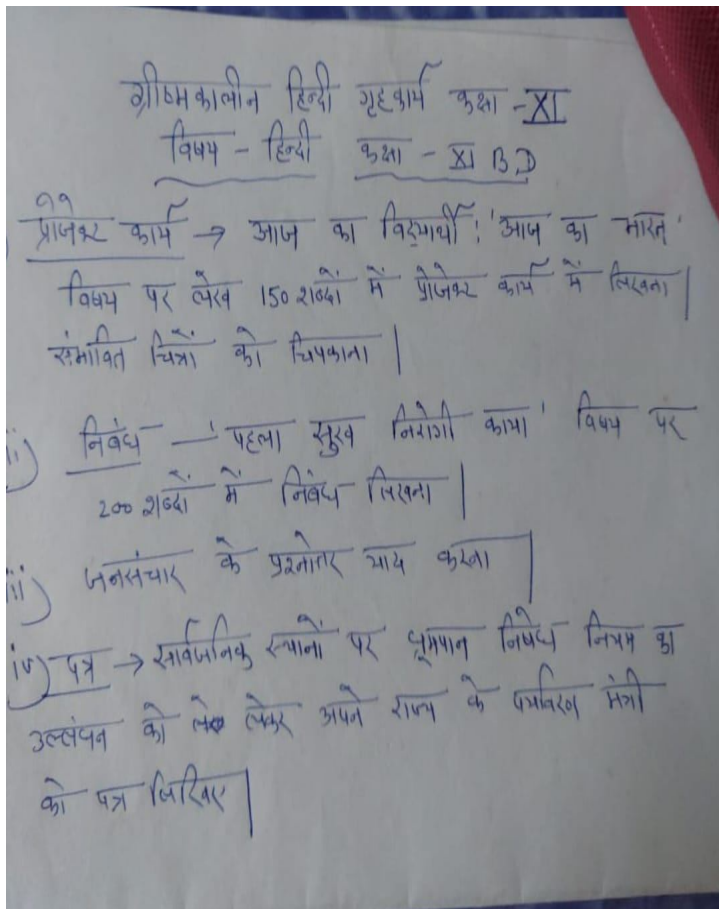 ग्रीष्मकालीन हिन्दी गृहकार्य कक्षा - XI
विषय - हिन्दी कक्षा - XI B,D
प्रोजेक्ट कार्य → आज का विद्यार्थी! 'आज का भारत'
विषय पर लेख 150 शब्दों में प्रोजेक्ट कार्य में लिखना।
संभावित चित्रों को चिपकाना।
ii) निबंध - 'पहला सुख निरोगी काया' विषय पर
200 शब्दों में निबंध लिखना।
iii) जनसंचार के प्रश्नोतर याद करना।
iv) पत्र → सार्वजनिक स्थानों पर धूम्रपान निषेध नियम का
उल्लंघन को लेकर अपने राज्य के पर्यावरण मंत्री
को पत्र लिखिए।